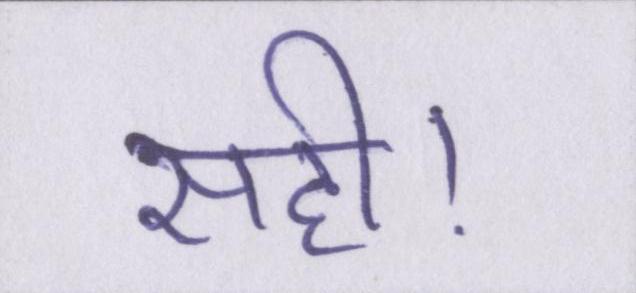 सही!